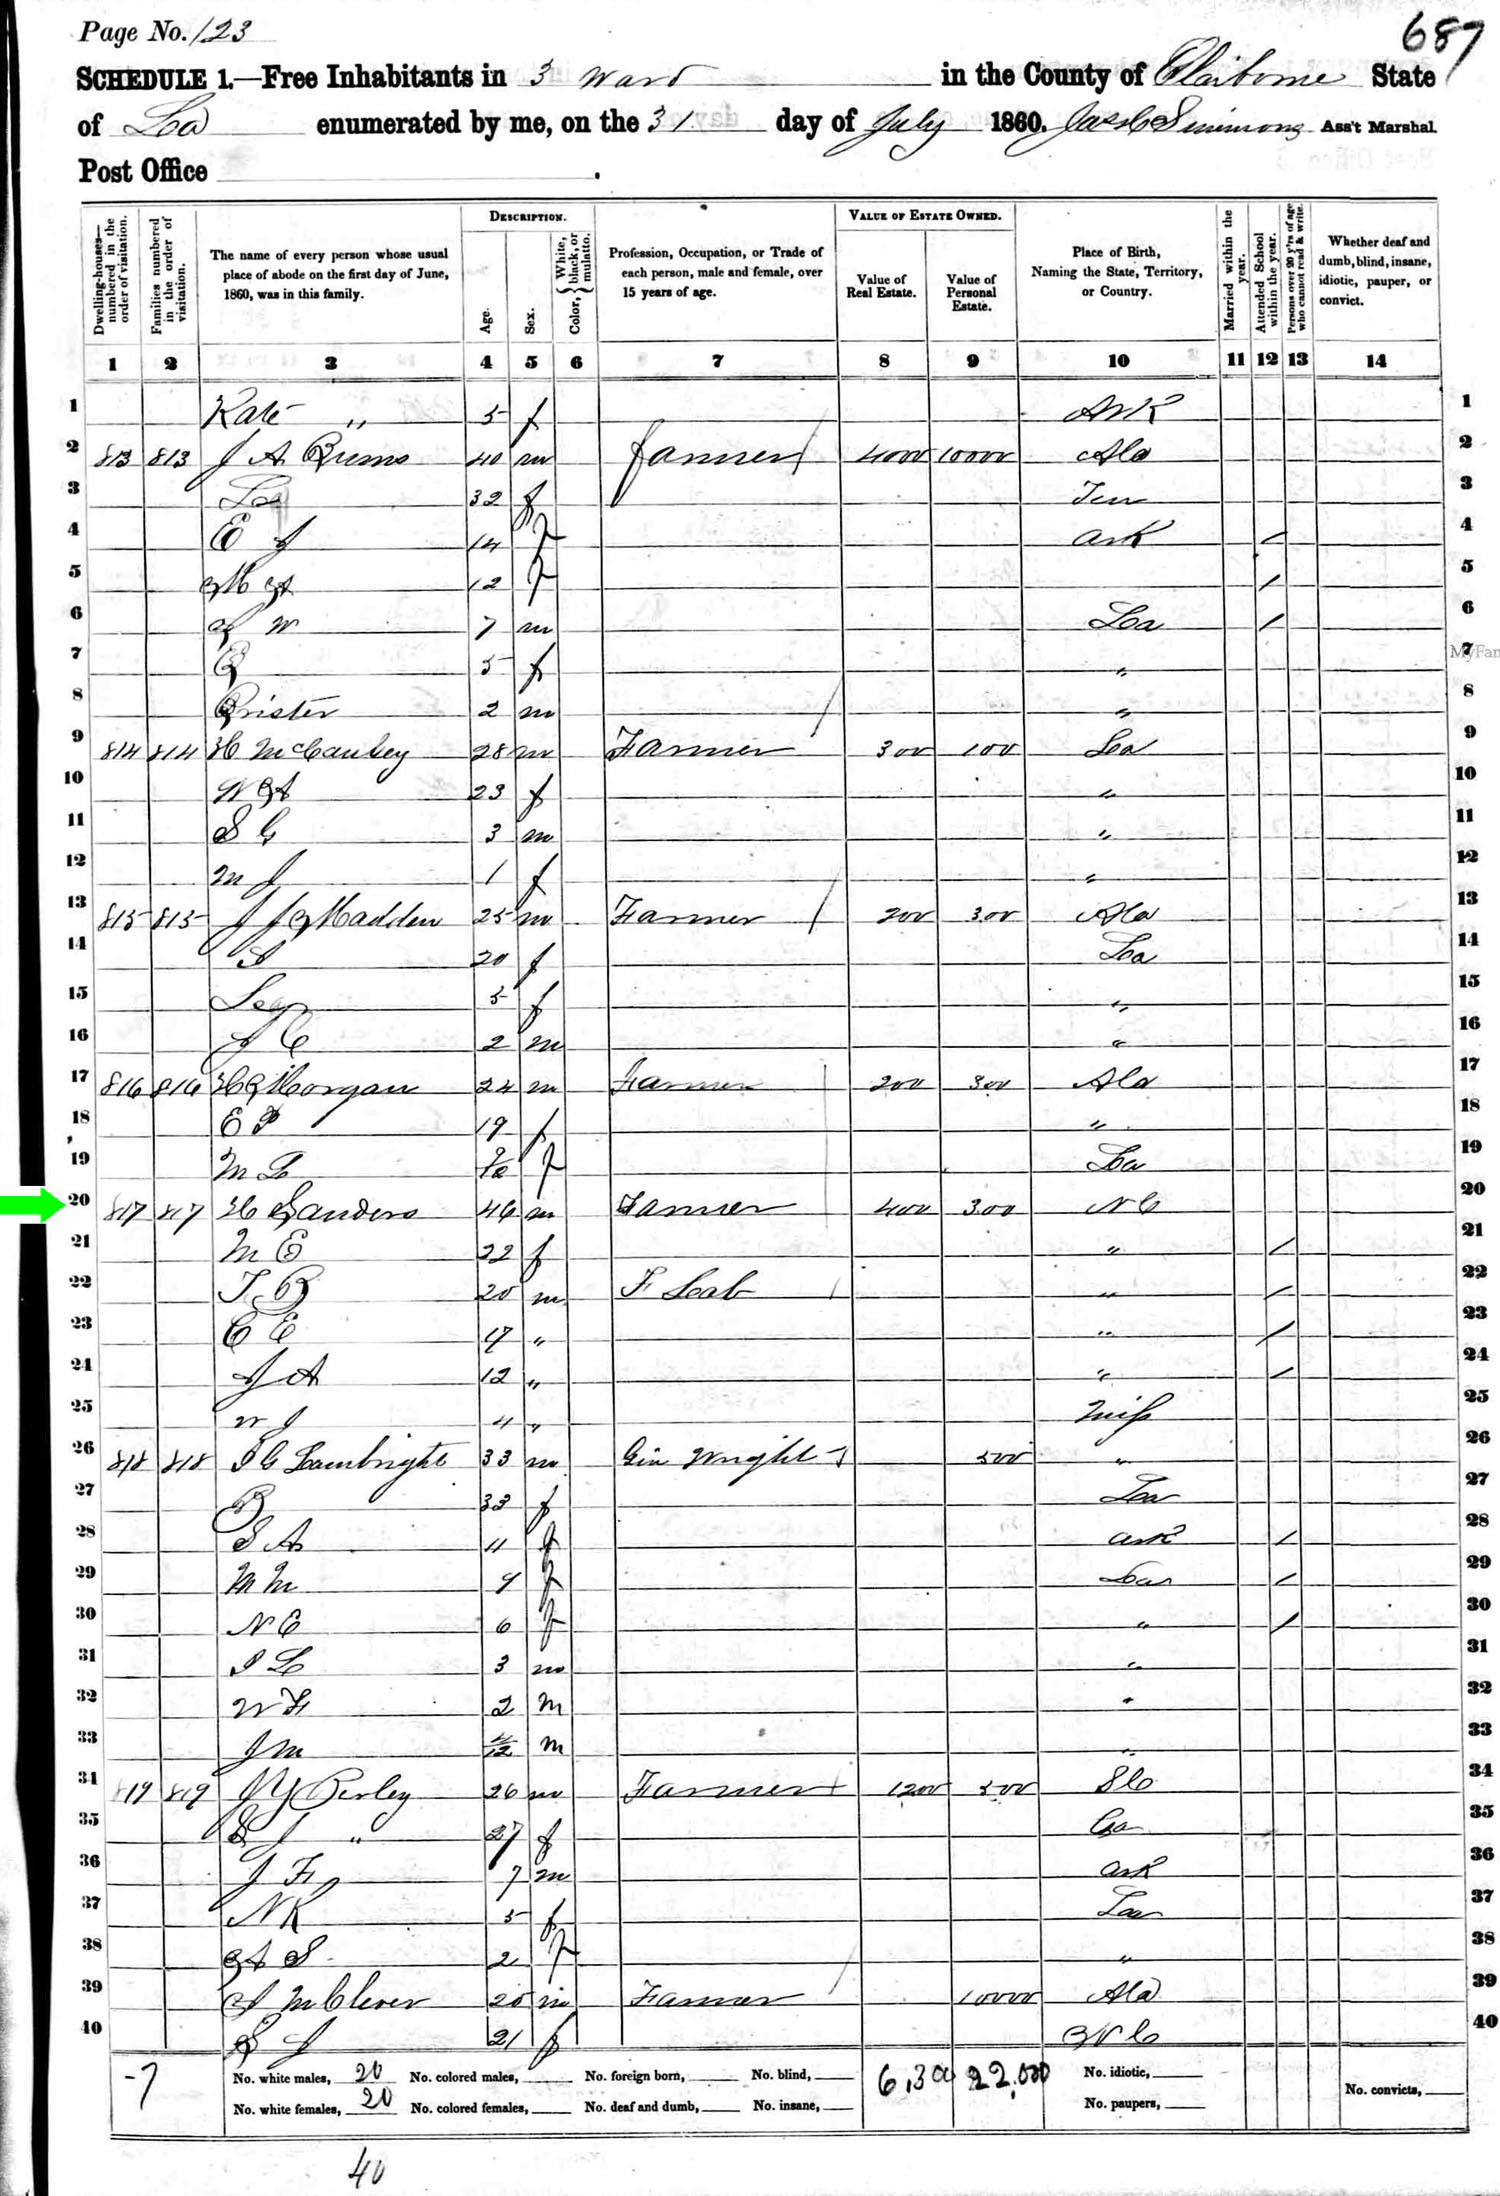 Page No. 123
687
SCHEDULE 1.—Free Inhabitants in 3 Ward in the County of Claiborne State
of Loa enumerated by me, on the 31 day of July 1860. Ass't Marshal.
Post Office .
Dwelling-houses—numbered in the order of visitation. Families numbered in the order of visitation. The name of every person whose usual place of abode on the first day of June, 1860, was in this family. DESCRIPTION. Age. Sex. Color, { White, black, or mulatto. Profession, Occupation, or Trade of each person, male and female, over 15 years of age. VALUE OF ESTATE OWNED. Value of Real Estate. Value of Personal Estate. Place of Birth, Naming the State, Territory, or Country. Married within the year. Attended School within the year. Persons over 20 y'rs of age who cannot read & write. Whether deaf and dumb, blind, insane, idiotic, pauper, or convict.
1 2 3 4 5 6 7 8 9 10 11 12 13 14
1 Kate " 5 f Ark 1
2 813 813 J A 40 m Farmer 4000 10000 Ala 2
3 32 f Ten 3
4 E J 14 f Ark / 4
5 M A 12 f / 5
6 W 7 m Loa / 6
7 5 f " 7
8 2 m " 8
9 814 814 H McCauley 28 m Farmer 300 100 Loa 9
10 N A 23 f " 10
11 S G 3 m " 11
12 M J 1 f " 12
13 815 815 J J Madden 25 m Farmer 200 300 Ala 13
14 S 20 f Loa 14
15 5 f " 15
16 J C 2 m " 16
17 816 816 H Morgan 24 m Farmer 200 300 Ala 17
18 E P 19 f " 18
19 M L f Loa 19
20 817 817 H Sanders 46 m Farmer 400 300 N C 20
21 M E 22 f " / 21
22 T B 20 m F Lab " / 22
23 C E 17 " " / 23
24 J A 12 " " / 24
25 W J 4 " Miss 25
26 818 818 I G Lambright 33 m Gin Wright 500 " 26
27 B 33 f Loa 27
28 S A 11 f Ark / 28
29 M M 9 f Loa / 29
30 N E 6 f " / 30
31 I L 3 m " 31
32 W F 2 m " 32
33 J M m " 33
34 819 819 J Y 26 m Farmer 1200 500 S C 34
35 S J " 27 f Ga 35
36 J F 7 m Ark 36
37 N K 5 f Loa 37
38 A S 2 f " 38
39 McClever 20 m Farmer 10000 Ala 39
40 S J 21 f N C 40
-7 No. white males, 20 No. colored males, No. foreign born, No. blind, 6,300 22,000 No. idiotic,
No. white females, 20 No. colored females, No. deaf and dumb, No. insane, No. paupers, No. convicts,
40
MyFam